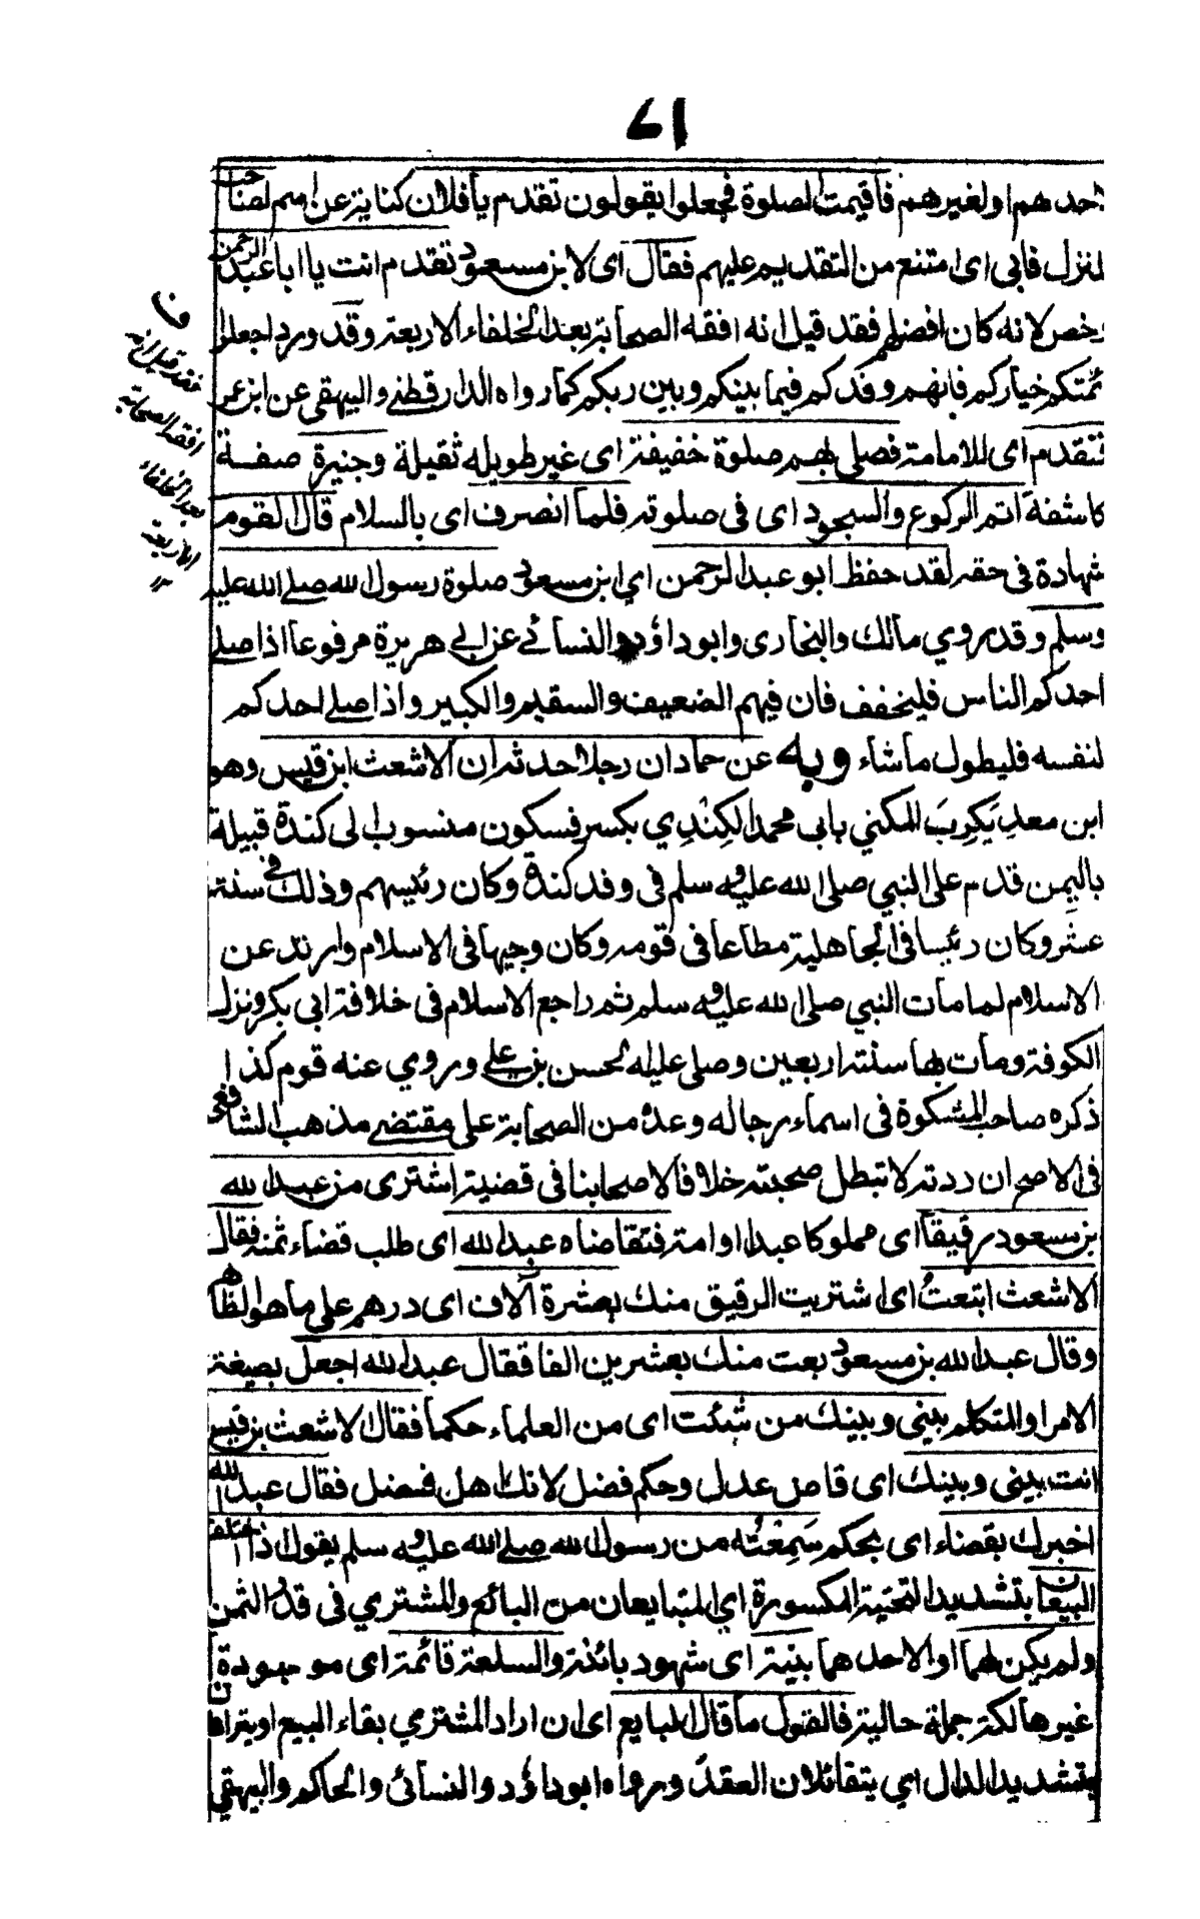 ٧١
احدهم او لغيرهم فاقيمت الصلوة فجعلوا يقولون تقدم يا فلان كناية عن اسم لصاحب
المنزل فابى اى امتنع من التقديم عليهم فقال اى لابن مسعود تقدم انت يا ابا عبد الرحمن
وخص لانه كان افضلهم فقد قيل انه افقه الصحابة بعد الخلفاء الاربعة وقد ورد اجعلوا
ئمتكم خياركم فانهم وفدكم فيما بينكم وبين ربكم كما رواه الدارقطني والبيهقى عن ابن عمر
فتقدم اى للامامة فصلى بهم صلوة خفيفة اى غير طويله ثقيلة وجيزة صفة
كاشفة اتم الركوع والسجود اى فى صلوته فلما انصرف اى بالسلام قال القوم
شهادة فى حقه لقد حفظ ابو عبد الرحمن اي ابن مسعود صلوة رسول الله صلى الله عليه
وسلم وقد روي مالك والبخارى وابو داؤد والنسائے عن ابي هريرة مرفوعا اذا صلى
احدكم الناس فليخفف فان فيهم الضعيف والسقيم والكبير واذا صلى احدكم
لنفسه فليطول ما شاء وبه عن حماد ان رجلا حدثه ان الاشعث ابن قيس وهو
ابن معديكرب المكني بابى محمد الكندي بكسر فسكون منسوب الى كندة قبيلة
باليمن قدم على النبي صلى الله عليه وسلم فى وفد كندة وكان رئيسهم وذلك فى سنة
عشر وكان رئيسا فى الجاهلية مطاعا فى قومه وكان وجيها فى الاسلام وارتد عن
الاسلام لما مات النبي صلى الله عليه وسلم ثم راجع الاسلام فى خلافة ابى بكر ونزل
الكوفة ومات بها سنة اربعين وصلى عليه الحسن بن على وروي عنه قوم كذا
ذكره صاحب المشكوة فى اسماء رجاله وعده من الصحابة على مقتضى مذهب الشافعى
فى الاصح ان ردته لا تبطل صحبته خلافا لاصحابنا فى قضية اشترى من عبد الله
بن مسعود رقيقا اى مملوكا عبدا او امة فتقاضاه عبد الله اى طلب قضاء ثمنه فقال
الاشعث ابتعت اى اشتريت الرقيق منك بعشرة آلاف اى درهم على ما هو الظاهر
وقال عبد الله بن مسعود بعت منك بعشرين الفا فقال عبد الله اجعل بصيغة
الامر او المتكلم بيني وبينك من شئت اى من العلماء حكما فقال الاشعث بن قيس
انت بيني وبينك اى قاض عدل وحكم فضل لانك اهل فضل فقال عبد الله
اخبرك بقضاء اى بحكم سمعته من رسول الله صلى الله عليه وسلم يقول اذا اختلف
البيعان بتشديد التحتية المكسورة اي المتبايعان من البائع والمشتري فى قدر الثمن
ولم يكن لهما او لاحدهما بينة اى شهود بائنة والسلعة قائمة اى موجودة
غير هالكة جملة حالية فالقول ما قال البايع اى ان اراد المشتري بقاء البيع او يترادان
بتشديد الدال اي يتقائلان العقد ورواه ابو داؤد والنسائى والحاكم والبيهقي
ف
فقد قيل انه
افقه الصحابة
بعد الخلفاء
الاربعة